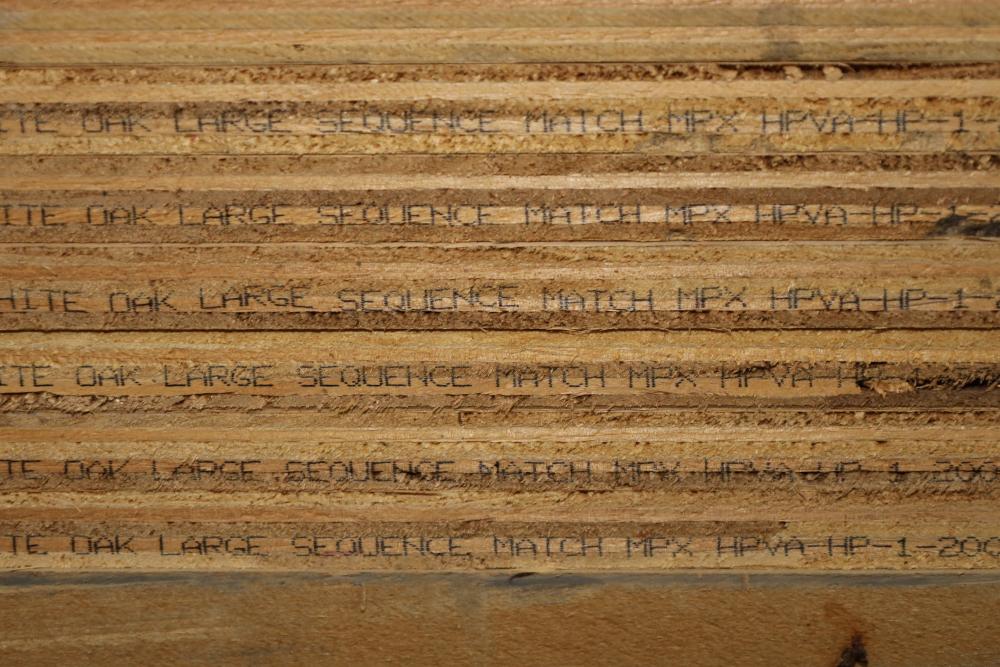 ITE OAK LARGE SEQUENCE MATCH MPX HPVA-HP-1-
ITE OAK LARGE SEQUENCE MATCH MPX HPVA-HP-1-
HITE OAK LARGE SEQUENCE MATCH MPX HPVA-HP-1-
ITE OAK LARGE SEQUENCE MATCH MPX HPVA
TE OAK LARGE SEQUENCE MATCH MPX HPVA-HP-1-200
TE OAK LARGE SEQUENCE MATCH MPX HPVA-HP-1-200